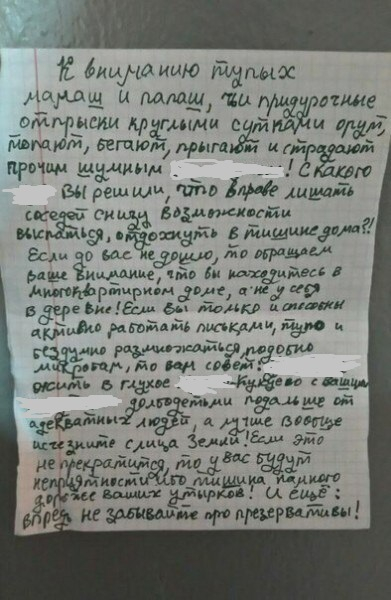 К вниманию тупых
мамаш и папаш, чьи придурочные
отпрыски круглыми сутками орут,
топают, бегают, прыгают и страдают
прочим шумным ! С какого
Вы решили, что вправе лишать
соседей снизу возможности
выспаться, отдохнуть в тишине дома?!
Если до вас не дошло, то обращаем
ваше внимание, что вы находитесь в
многоквартирном доме, а не у себя
в деревне! Если вы только и способны
активно работать письками, тупо и
бездумно размножаться, подобно
микробам, то вам совет:
жить в глухое Кукуево с вашими
долбодетьми подальше от
адекватных людей, а лучше вообще
исчезните с лица Земли! Если это
не прекратится, то у вас будут
неприятности ибо тишина намного
дороже ваших утырков! И ещё:
впредь не забывайте про презервативы!